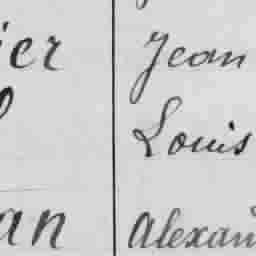 ier Jean
Louis
an Alexan